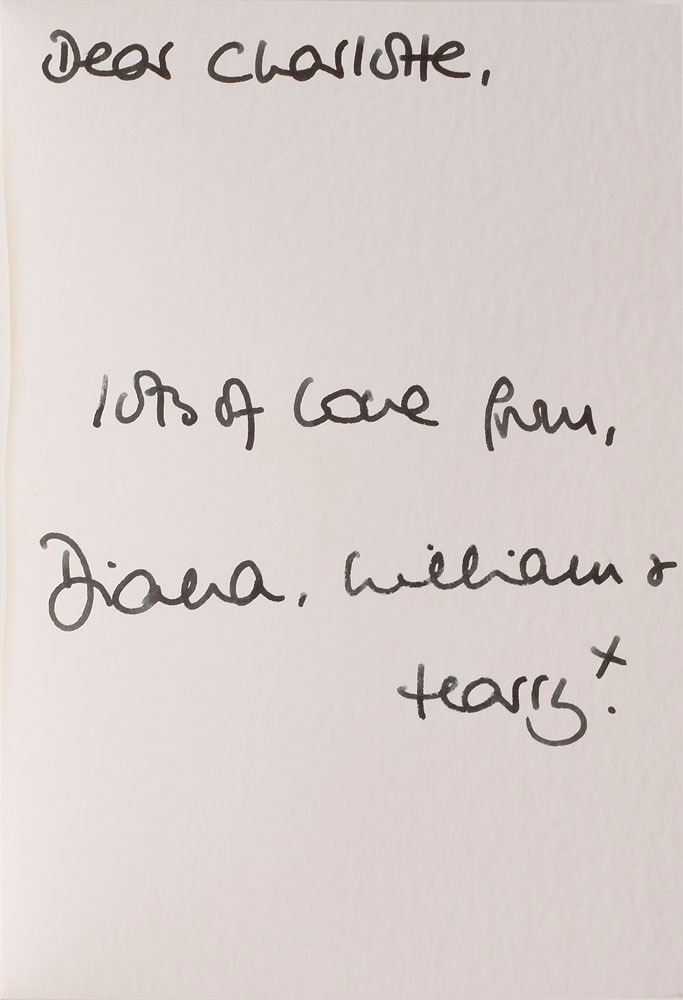 Dear Charlotte,
lots of love from,
Diana, William &
Harry x.